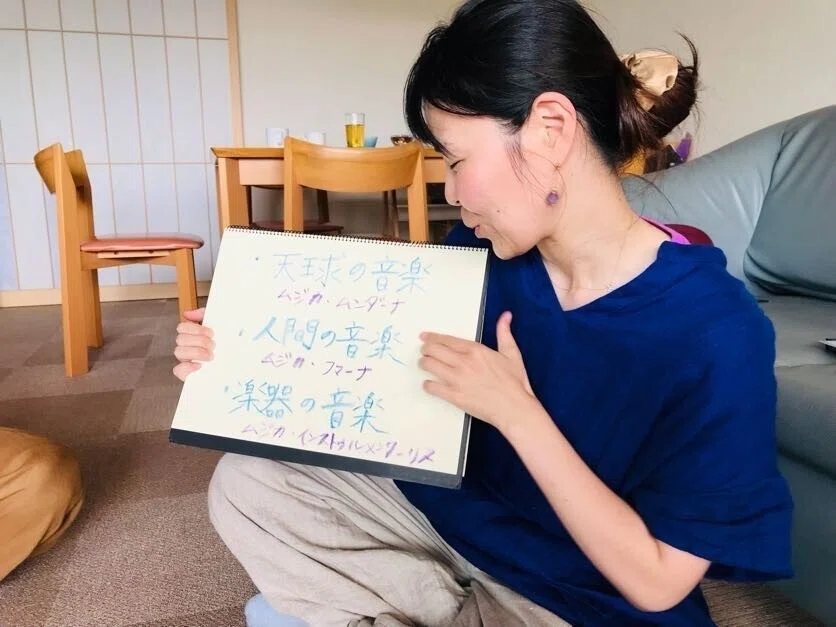 ・天球の音楽
ムジカ・ムンダーナ
・人間の音楽
ムジカ・フマーナ
・楽器の音楽
ムジカ・インストゥルメンターリス